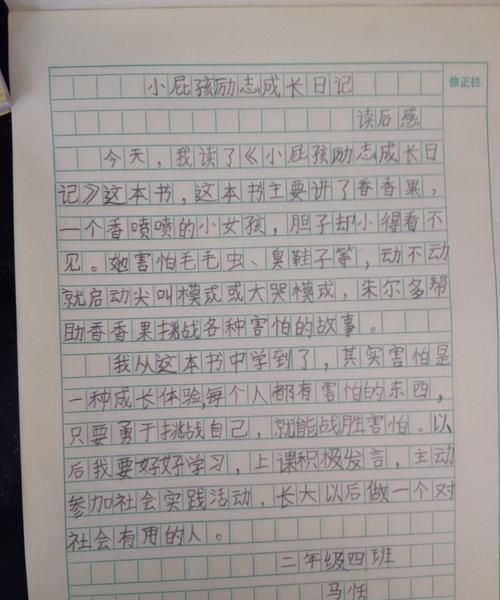 修正栏
小屁孩励志成长日记
读后感
今天，我读了《小屁孩励志成长日
记》这本书，这本书主要讲了香香果，
一个香喷喷的小女孩，胆子却小得看不
见。她害怕毛毛虫、臭鞋子等，动不动
就启动尖叫模式或大哭模式，朱尔多帮
助香香果挑战各种害怕的故事。
我从这本书中学到了，其实害怕是
一种成长体验，每个人都有害怕的东西，
只要勇于挑战自己，就能战胜害怕。以
后我要好好学习，上课积极发言，主动
参加社会实践活动，长大以后做一个对
社会有用的人。
二年级四班
马恬